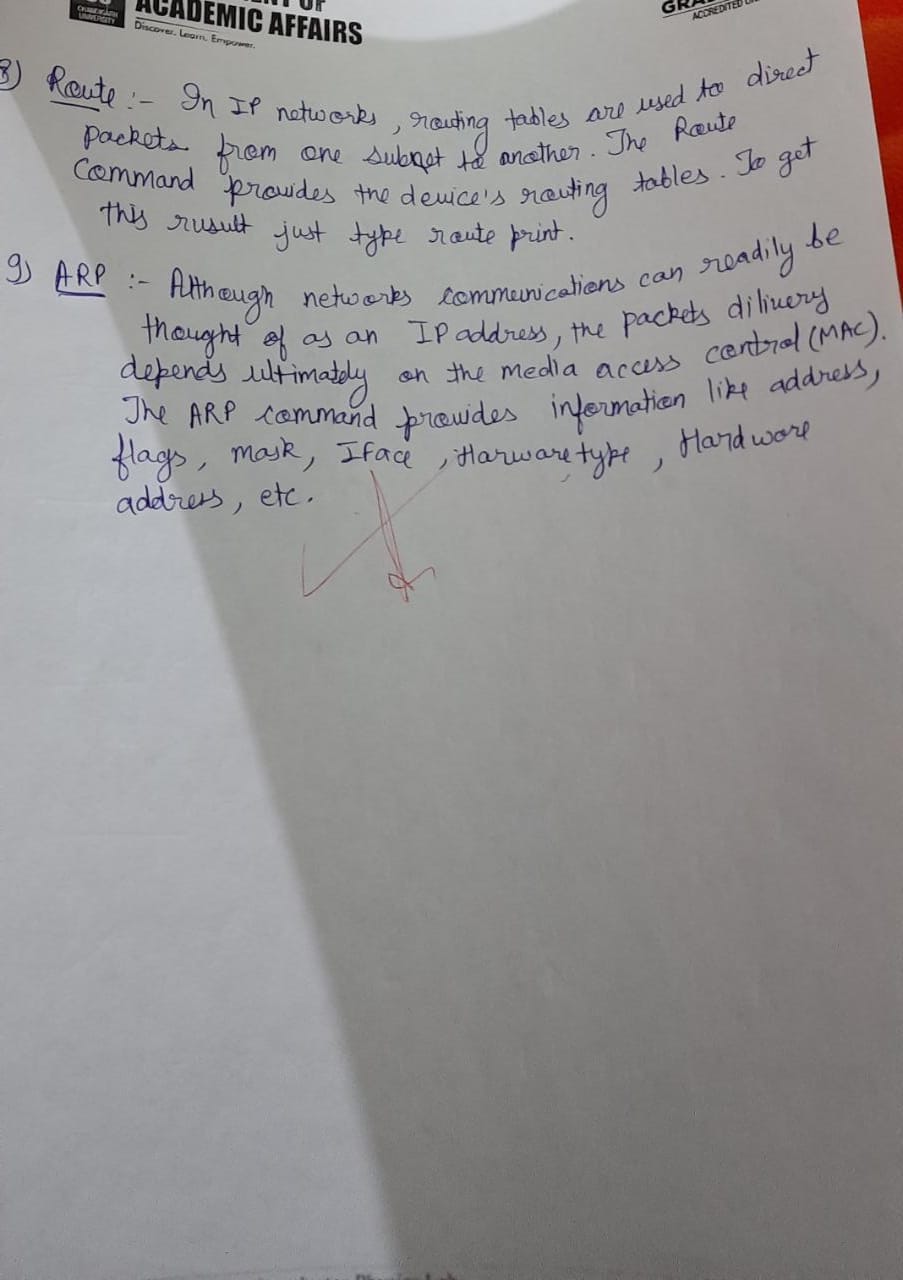 ACADEMIC AFFAIRS
Discover. Learn. Empower.
CHANDIGARH
UNIVERSITY
ACCREDITED
8) Route :- In IP networks, routing tables are used to direct
packets from one subnet to another. The Route
Command provides the device's routing tables. To get
this rusult just type route print.
9) ARP :- Although networks communications can readily be
thought of as an IP address, the packets dilivery
depends ultimately on the media access control (MAC).
The ARP command provides information like address,
flags, mask, Iface, Harware type, Hardware
address, etc.